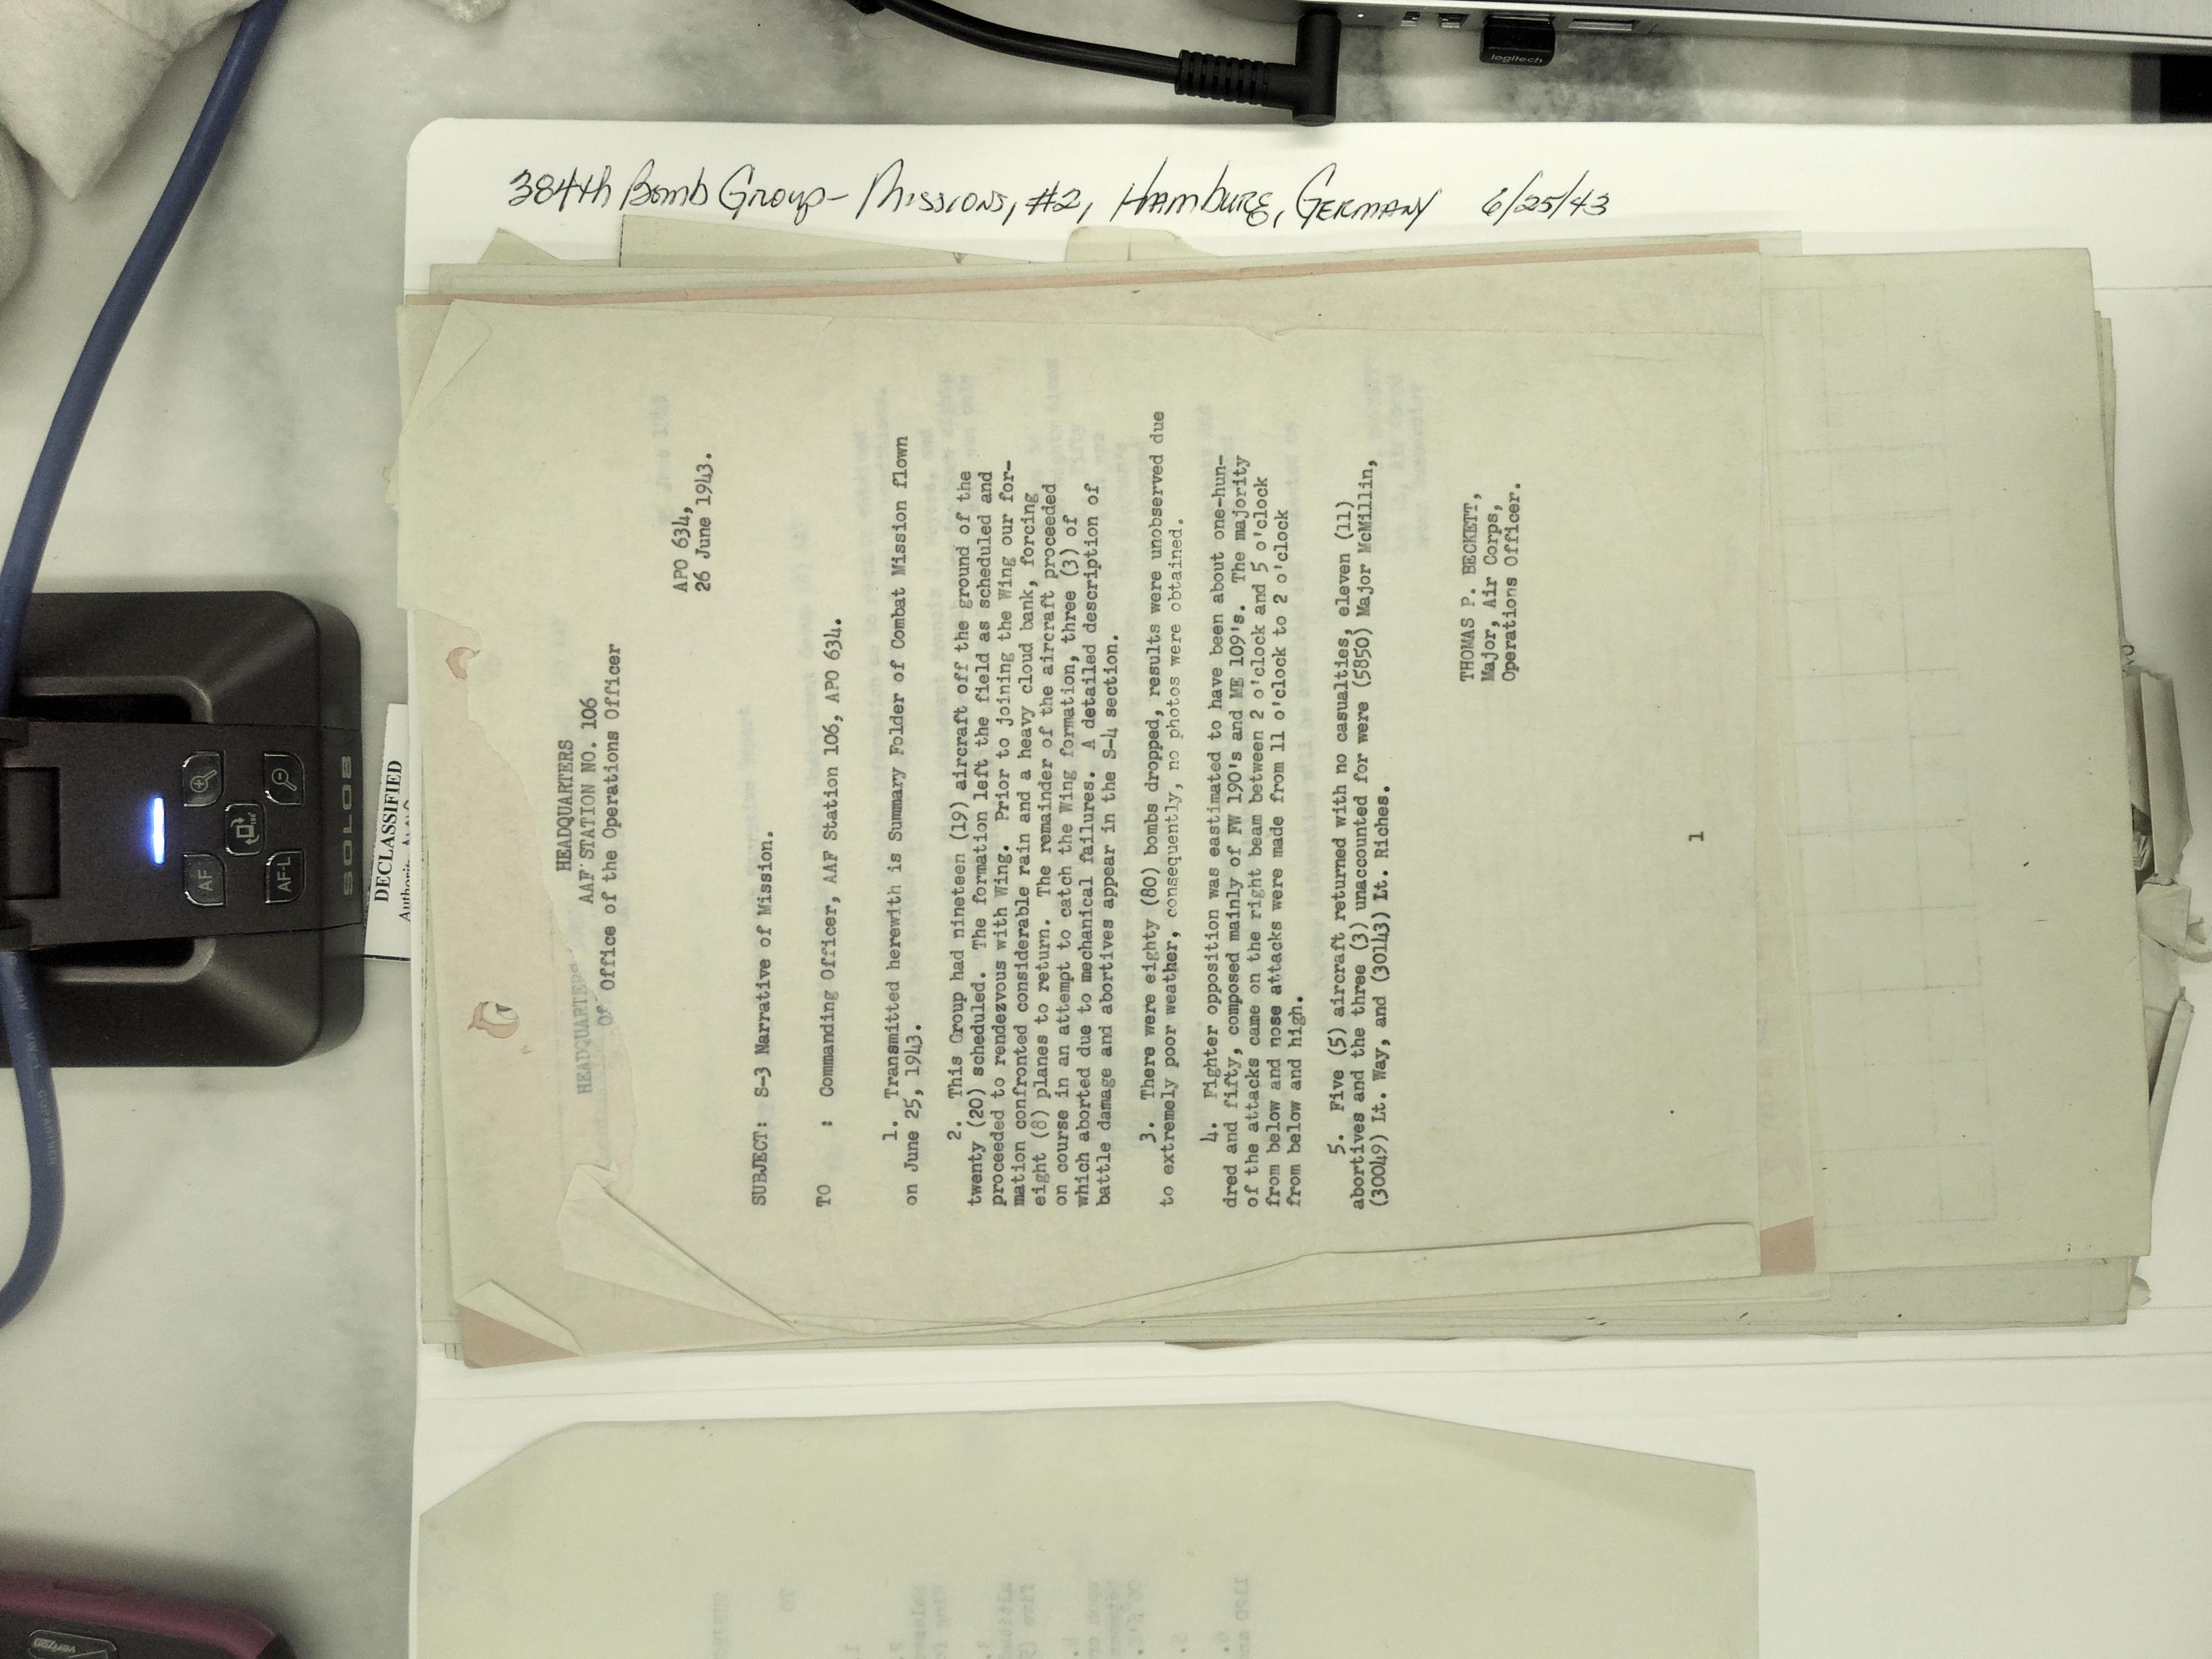 384th Bomb Group - Missions, #2, Hamburg, Germany 6/25/43
logitech
DECLASSIFIED
SOLO8
AF
AF-L
HEADQUARTERS
AAF STATION NO. 106
Office of the Operations Officer
HEADQUARTERS
Of
APO 634,
26 June 1943.
SUBJECT: S-3 Narrative of Mission.
TO : Commanding Officer, AAF Station 106, APO 634.
1. Transmitted herewith is Summary Folder of Combat Mission flown
on June 25, 1943.
2. This Group had nineteen (19) aircraft off the ground of the
twenty (20) scheduled. The formation left the field as scheduled and
proceeded to rendezvous with Wing. Prior to joining the Wing our for-
mation confronted considerable rain and a heavy cloud bank, forcing
eight (8) planes to return. The remainder of the aircraft proceeded
on course in an attempt to catch the Wing formation, three (3) of
which aborted due to mechanical failures. A detailed description of
battle damage and abortives appear in the S-4 section.
3. There were eighty (80) bombs dropped, results were unobserved due
to extremely poor weather, consequently, no photos were obtained.
4. Fighter opposition was eastimated to have been about one-hun-
dred and fifty, composed mainly of FW 190's and ME 109's. The majority
of the attacks came on the right beam between 2 o'clock and 5 o'clock
from below and nose attacks were made from 11 o'clock to 2 o'clock
from below and high.
5. Five (5) aircraft returned with no casualties, eleven (11)
abortives and the three (3) unaccounted for were (5850) Major McMillin,
(30049) Lt. Way, and (30143) Lt. Riches.
THOMAS P. BECKETT,
Major, Air Corps,
Operations Officer.
1
verizon